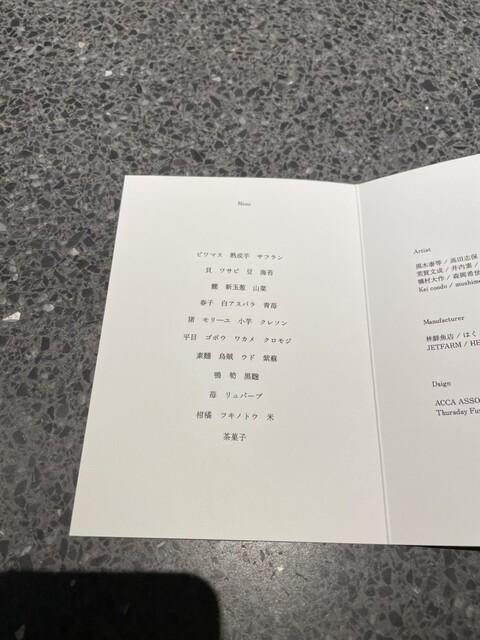 Menu
ビワマス 熟成芋 サフラン
貝 ワサビ 豆 海苔
鰻 新玉葱 山菜
春子 白アスパラ 青苺
猪 モリーユ 小芋 クレソン
平目 ゴボウ ワカメ クロモジ
素麺 烏賊 ウド 紫蘇
鴨 筍 黒麹
苺 リュバーブ
柑橘 フキノトウ 米
茶菓子
Artist
黒木泰等 / 高田志保
荒賀文成 / 井内素 /
橋村大作 / 森岡希世
Kai condo / mushime
Manufacturer
林鮮魚店 / はく
JETFARM / HE
Daign
ACCA ASSO
Thuraday Fu